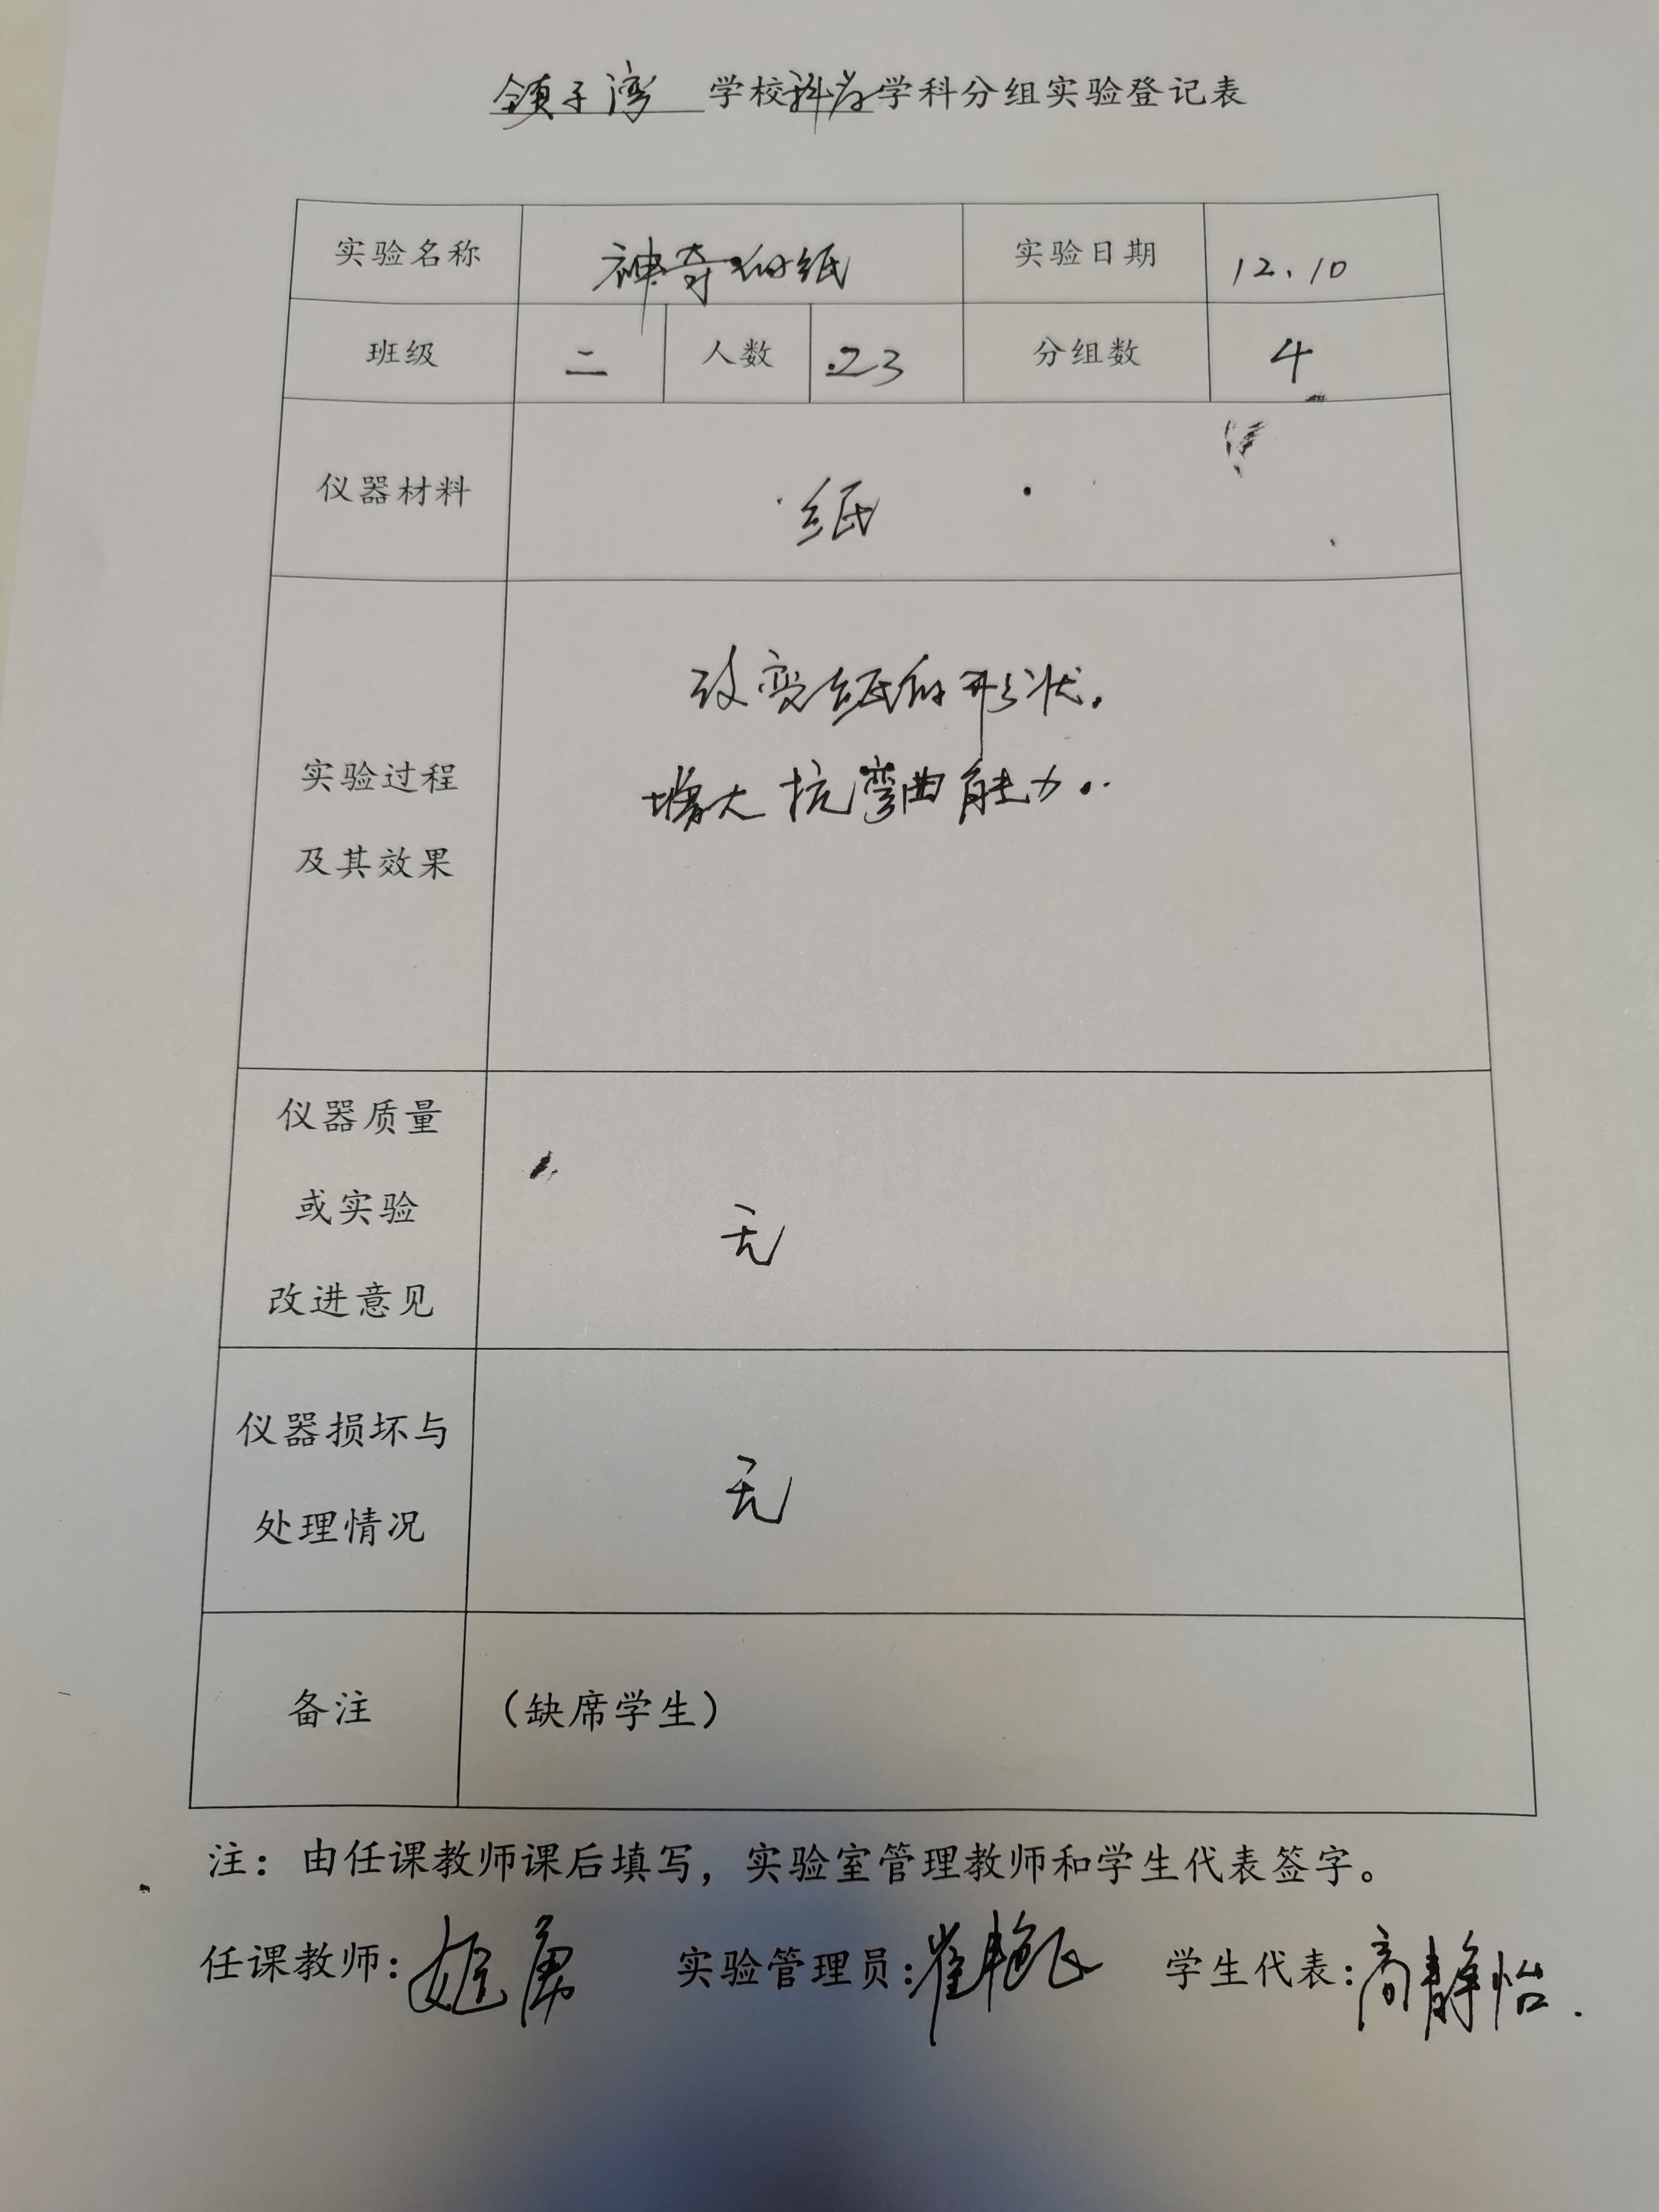 镇子湾 学校科学学科分组实验登记表
实验名称 神奇的纸 实验日期 12.10
班级 二 人数 23 分组数 4
仪器材料 纸
改变纸的形状。
增大抗弯曲能力。
实验过程
及其效果
仪器质量
或实验
改进意见
无
仪器损坏与
处理情况
无
备注 (缺席学生)
注:由任课教师课后填写,实验室管理教师和学生代表签字。
任课教师: 实验管理员: 学生代表:高静怡.